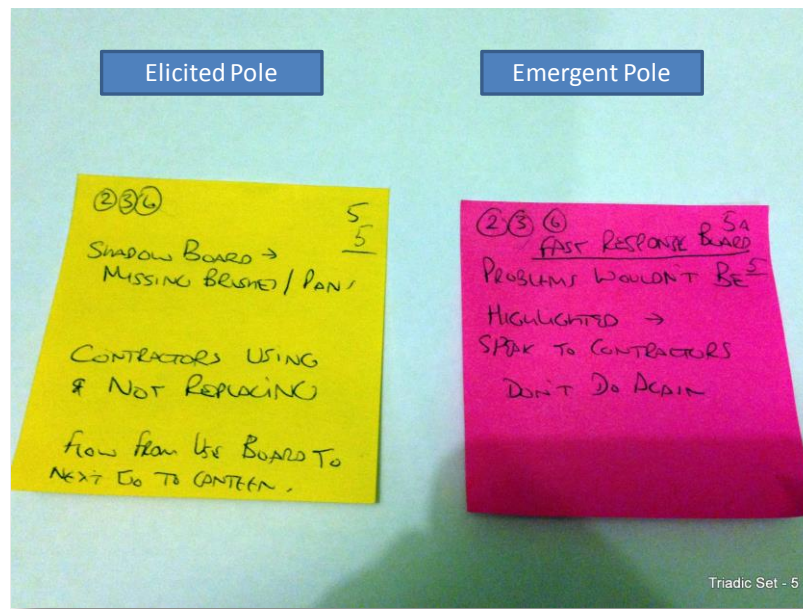 Elicited Pole
Emergent Pole
② ③ ⑥
5
5
SHADOW BOARD →
MISSING BRUSHES / PANS
CONTRACTORS USING
& NOT REPLACING
FLOW FROM BOARD TO
NEXT GO TO CANTEEN.
② ③ ⑥
5A
FAST RESPONSE BOARD
5
PROBLEMS WOULDN'T BE
HIGHLIGHTED →
SPEAK TO CONTRACTORS
DON'T DO AGAIN
Triadic Set - 5